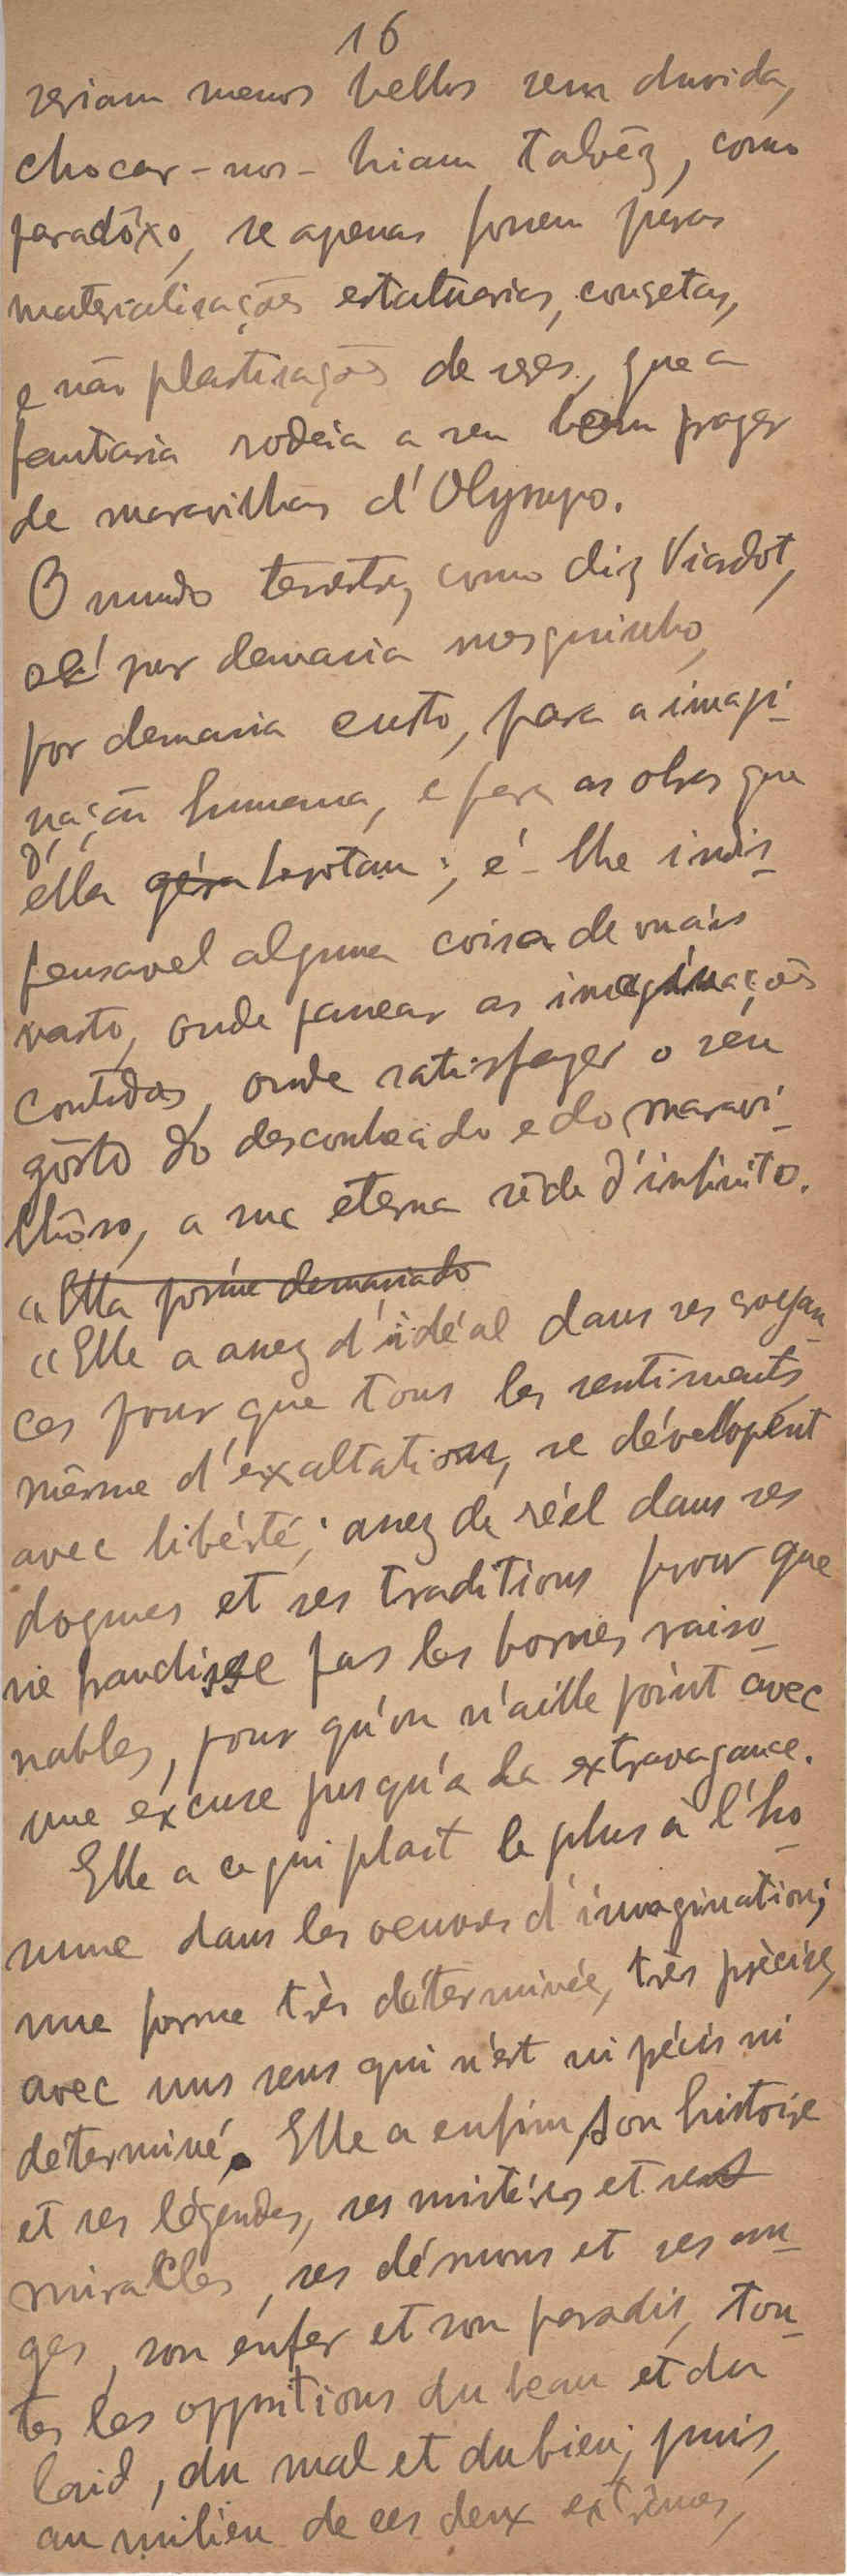 16
seriam menos bellos sem duvida,
chocar-nos-hiam talvêz, como
paradôxo, se apenas fossem puras
materialisações estatuarias, congetas,
e não plastisações de seres, que a
fantasia rodeia a seu bom prazer
de maravilhas d'Olympo.
O mundo terrestre, como diz Viardot,
é por demasia mesquinho,
por demasia curto, para a imagi-
nação humana, e para as obras que
d'ella géra brotam; é-lhe indis-
pensavel alguma coisa de mais
vasto, onde panear as imaginações
contidas, onde satisfazer o seu
gôsto do desconhecido e do maravi-
lhôso, a sua eterna sêde d'infinito.
"Ella possúe demasiado
"Elle a assez d'idéal dans ses croyan-
ces pour que tous les sentiments,
même d'exaltation, se dévellopent
avec libérté; assez de réel dans ses
dogmes et ses traditions pour que
ne franchisse pas les bornes raiso-
nables, pour qu'on n'aille point avec
une excuse jusqu'a la extravagance.
Elle a ce qui plait le plus à l'ho-
mme dans les oeuvres d'imagination;
une forme très déterminée, très prècise,
avec uns sens qui n'est ni pécis ni
déterminé. Elle a enfim son histoire
et ses légendes, ses mistéres et ses
miraCles, ses démons et ses an-
ges, son enfer et son paradis, tou-
tes les oppositions du beau et du
laid, du mal et du bien; puis,
au milieu de ces deux extrêmes,